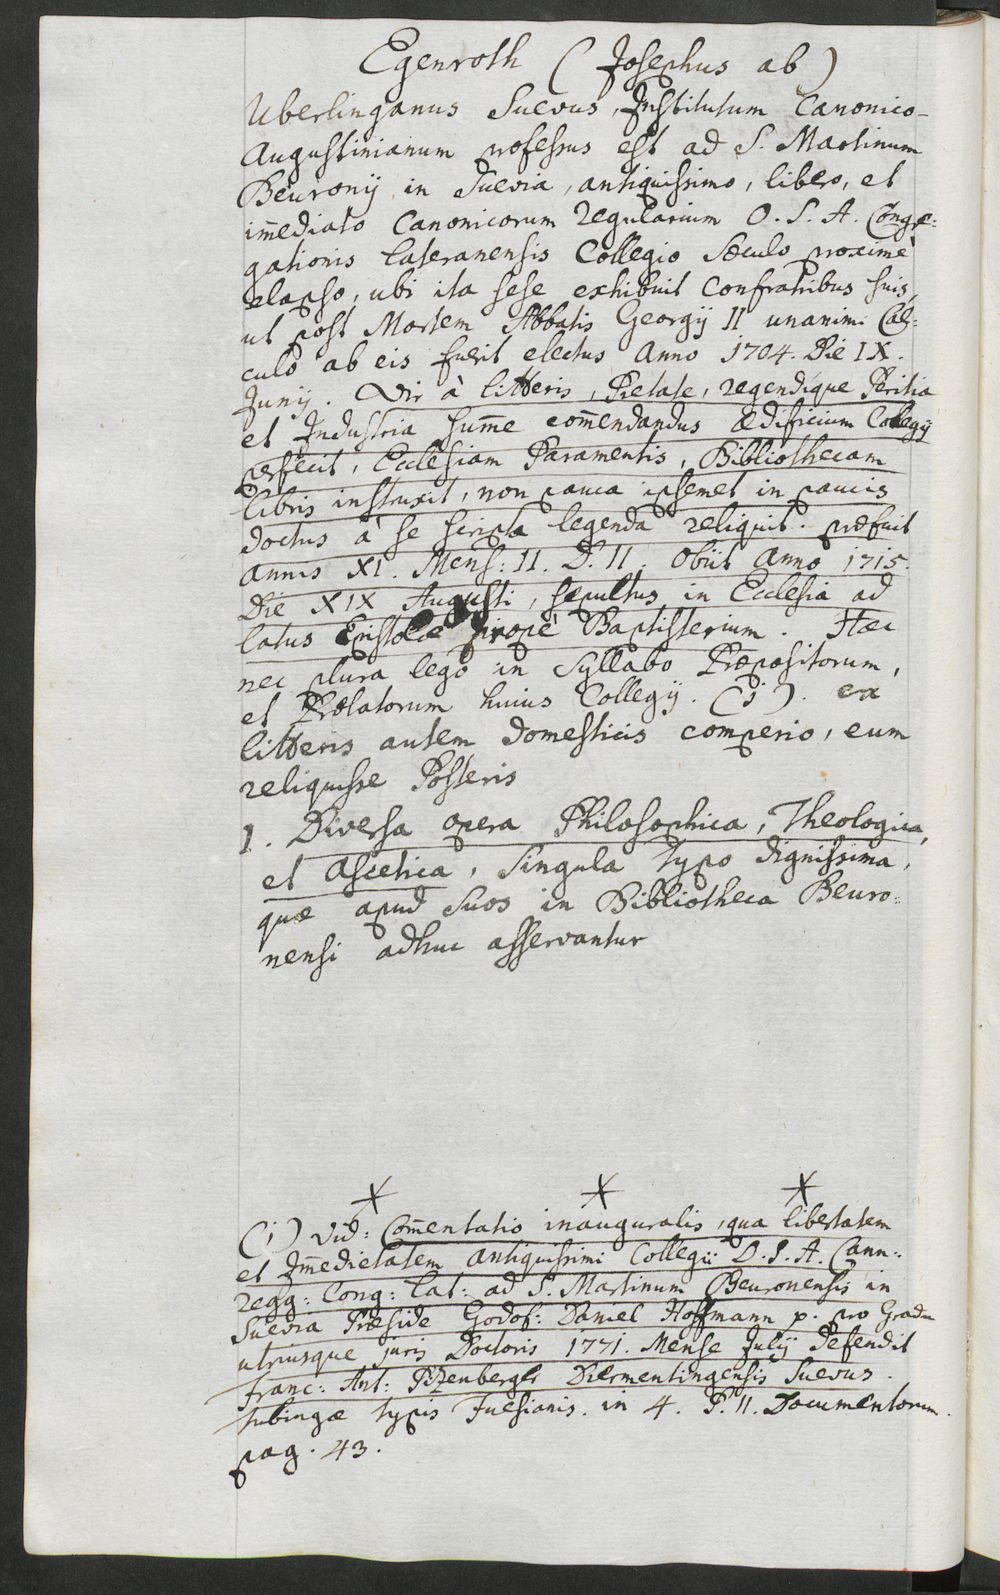 Egenroth (Josephus ab)
Uberlinganus Suevus, Institutum Canonico-
Augustinianum professus est ad S. Martinum
Beuronij in Suevia, antiquissimo, libero, et
im̄ediato Canonicorum Regularium O. S. A. Congre=
gationis Lateranensis Collegio Sæculo proximè
elapso, ubi ita sese exhibuit Confratribus suis,
ut post Mortem Abbatis Georgij II unanimi Cal=
culo ab eis fuerit electus Anno 1704. Die IX.
Junij. Vir à litteris, Pietate, regendique Peritia
et Industria sum̄e com̄endandus ædificium Collegij
perfecit, Ecclesiam Paramentis, Bibliothecam
libris instruxit, non pauca ipsemet in paucis
doctus à se scripta legenda reliquit. præfuit
annis XI. Mens: II. D. II. Obiit Anno 1715.
Die XIX Augusti, sepultus in Ecclesia ad
latus Epistolæ prope Baptisterium. Hæc
nec plura lego in Syllabo Præpositorum,
et Prælatorum huius Collegij. (i). ex
litteris autem domesticis comperio, eum
reliquisse Posteris
1. Diversa opera Philosophica, Theologica,
et Ascetica, singula typo dignissima,
quæ apud suos in Bibliotheca Beuro=
nensi adhuc asservantur
(i) Vid: Com̄entatio inauguralis, qua libertatem
et Im̄edietatem antiquissimi Collegii O. S. A. Cann:
regg: Cong: Lat: ad S. Martinum Beuronensis in
Suevia Præside Godof: Daniel Hoffmann p. pro Gradu
utriusque juris Doctoris 1771. Mense Julij defendit
Franc: Ant: Pizenberger Diermentingensis Suevus.
Tubingæ typis Fuesianis. in 4. P. II. Documentorum.
pag. 43.